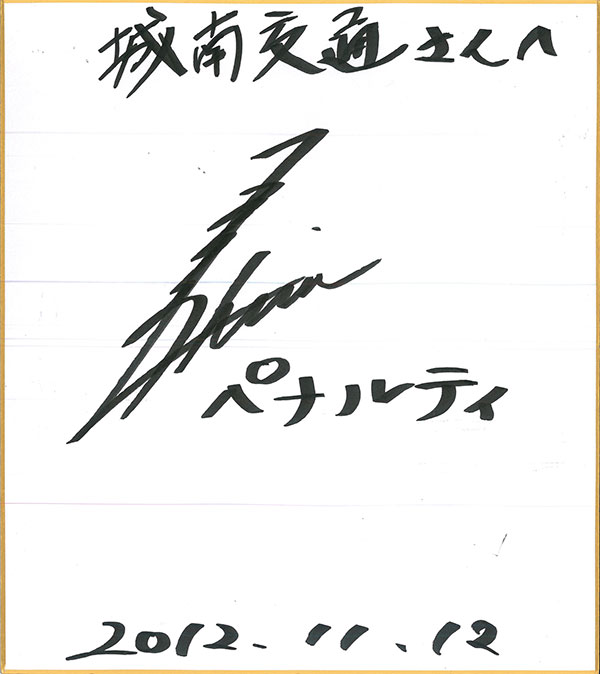 城南交通さんへ
ペナルティ
2012.11.12